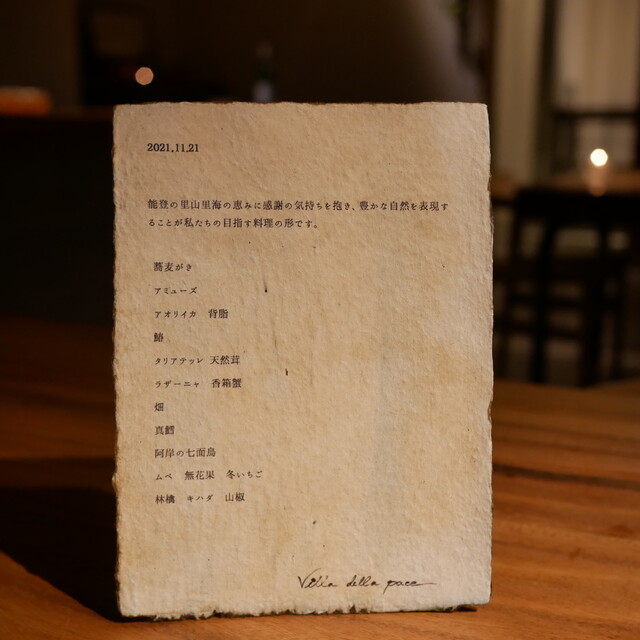 2021.11.21
能登の里山里海の恵みに感謝の気持ちを抱き、豊かな自然を表現す
ることが私たちの目指す料理の形です。
蕎麦がき
アミューズ
アオリイカ 背脂
鰆
タリアテッレ 天然茸
ラザーニャ 香箱蟹
畑
真鱈
阿岸の七面鳥
ムベ 無花果 冬いちご
林檎 キハダ 山椒
Villa della pace